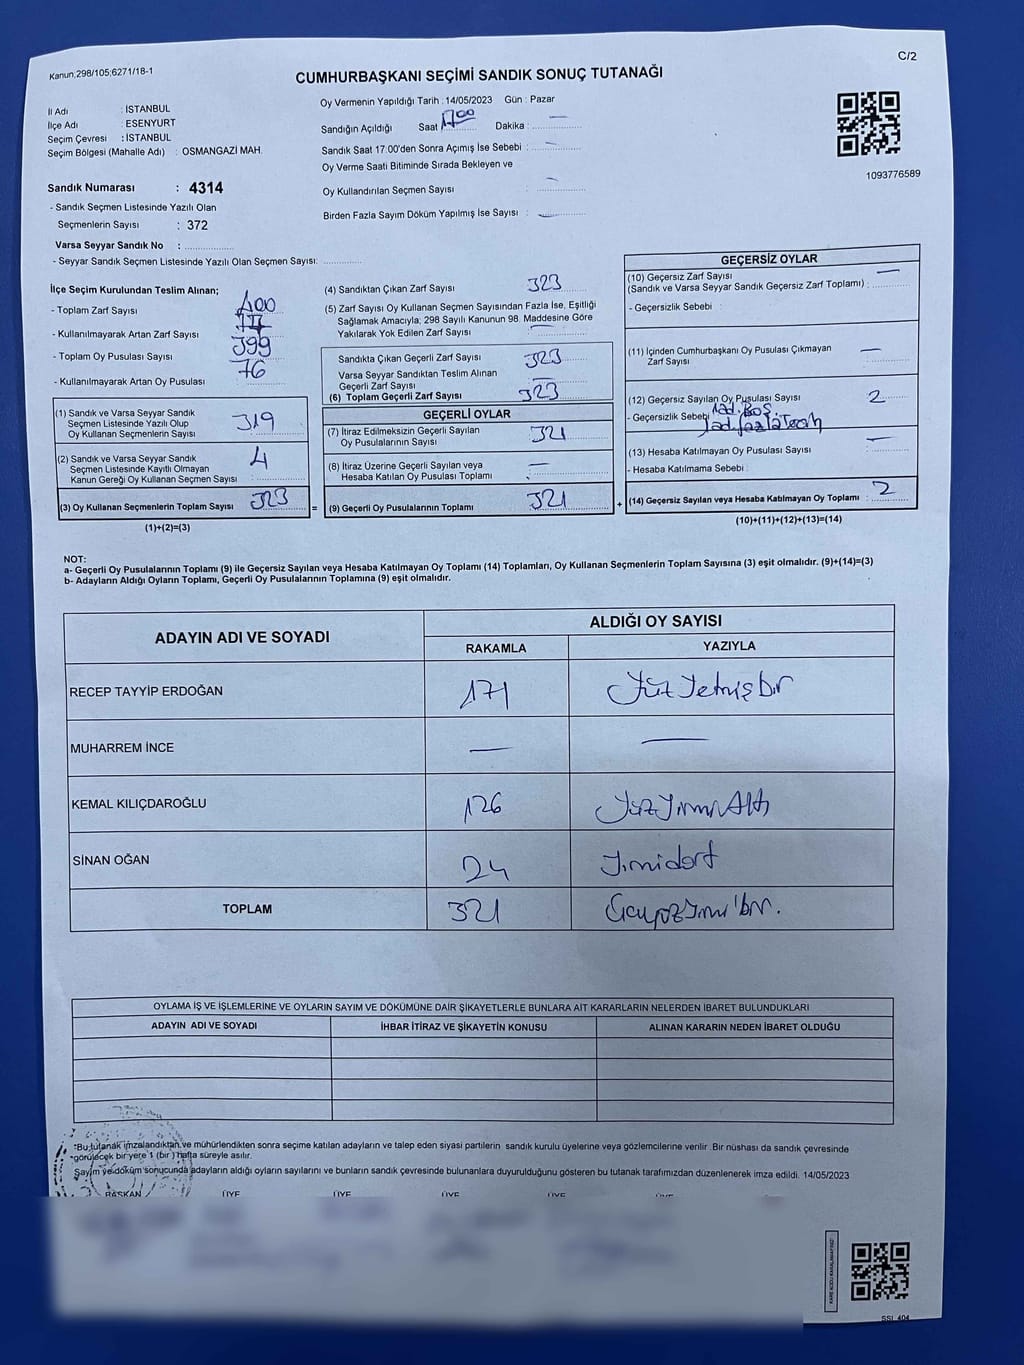 Kanun;298/105;6271/18-1
C/2
CUMHURBAŞKANI SEÇİMİ SANDIK SONUÇ TUTANAĞI
İl Adı : İSTANBUL
İlçe Adı : ESENYURT
Seçim Çevresi : İSTANBUL
Seçim Bölgesi (Mahalle Adı) : OSMANGAZİ MAH.
Sandık Numarası : 4314
- Sandık Seçmen Listesinde Yazılı Olan
Seçmenlerin Sayısı : 372
Varsa Seyyar Sandık No :
- Seyyar Sandık Seçmen Listesinde Yazılı Olan Seçmen Sayısı:
Oy Vermenin Yapıldığı Tarih : 14/05/2023 Gün : Pazar
Sandığın Açıldığı Saat 1700 Dakika : —
Sandık Saat 17:00'den Sonra Açımış İse Sebebi : —
Oy Verme Saati Bitiminde Sırada Bekleyen ve
Oy Kullandırılan Seçmen Sayısı : —
Birden Fazla Sayım Döküm Yapılmış İse Sayısı : —
1093776589
İlçe Seçim Kurulundan Teslim Alınan;
- Toplam Zarf Sayısı 400
- Kullanılmayarak Artan Zarf Sayısı 77
- Toplam Oy Pusulası Sayısı 399
- Kullanılmayarak Artan Oy Pusulası 76
(1) Sandık ve Varsa Seyyar Sandık
Seçmen Listesinde Yazılı Olup
Oy Kullanan Seçmenlerin Sayısı 319
(2) Sandık ve Varsa Seyyar Sandık
Seçmen Listesinde Kayıtlı Olmayan
Kanun Gereği Oy Kullanan Seçmen Sayısı 4
(3) Oy Kullanan Seçmenlerin Toplam Sayısı 323
(1)+(2)=(3)
(4) Sandıktan Çıkan Zarf Sayısı 323
(5) Zarf Sayısı Oy Kullanan Seçmen Sayısından Fazla İse, Eşitliği
Sağlamak Amacıyla; 298 Sayılı Kanunun 98. Maddesine Göre
Yakılarak Yok Edilen Zarf Sayısı —
Sandıkta Çıkan Geçerli Zarf Sayısı 323
Varsa Seyyar Sandıktan Teslim Alınan
Geçerli Zarf Sayısı —
(6) Toplam Geçerli Zarf Sayısı 323
GEÇERLİ OYLAR
(7) İtiraz Edilmeksizin Geçerli Sayılan
Oy Pusulalarının Sayısı 321
(8) İtiraz Üzerine Geçerli Sayılan veya
Hesaba Katılan Oy Pusulası Toplamı —
= (9) Geçerli Oy Pusulalarının Toplamı 321
GEÇERSİZ OYLAR
(10) Geçersiz Zarf Sayısı —
(Sandık ve Varsa Seyyar Sandık Geçersiz Zarf Toplamı) :
- Geçersizlik Sebebi :
(11) İçinden Cumhurbaşkanı Oy Pusulası Çıkmayan
Zarf Sayısı —
(12) Geçersiz Sayılan Oy Pusulası Sayısı 2
- Geçersizlik Sebebi 1ad. Boş
1ad. fazla
(13) Hesaba Katılmayan Oy Pusulası Sayısı —
- Hesaba Katılmama Sebebi
+ (14) Geçersiz Sayılan veya Hesaba Katılmayan Oy Toplamı : 2
(10)+(11)+(12)+(13)=(14)
NOT:
a- Geçerli Oy Pusulalarının Toplamı (9) ile Geçersiz Sayılan veya Hesaba Katılmayan Oy Toplamı (14) Toplamları, Oy Kullanan Seçmenlerin Toplam Sayısına (3) eşit olmalıdır. (9)+(14)=(3)
b- Adayların Aldığı Oyların Toplamı, Geçerli Oy Pusulalarının Toplamına (9) eşit olmalıdır.
ADAYIN ADI VE SOYADI
ALDIĞI OY SAYISI
RAKAMLA YAZIYLA
RECEP TAYYİP ERDOĞAN 171 Yüz Yetmiş bir
MUHARREM İNCE — —
KEMAL KILIÇDAROĞLU 126 Yüz Yirmi Altı
SİNAN OĞAN 24 Yirmidört
TOPLAM 321 Üçyüz Yirmi bir.
OYLAMA İŞ VE İŞLEMLERİNE VE OYLARIN SAYIM VE DÖKÜMÜNE DAİR ŞİKAYETLERLE BUNLARA AİT KARARLARIN NELERDEN İBARET BULUNDUKLARI
ADAYIN ADI VE SOYADI İHBAR İTİRAZ VE ŞİKAYETİN KONUSU ALINAN KARARIN NEDEN İBARET OLDUĞU
*Bu tutanak imzalandıktan ve mühürlendikten sonra seçime katılan adayların ve talep eden siyasi partilerin sandık kurulu üyelerine veya gözlemcilerine verilir. Bir nüshası da sandık çevresinde
görülecek bir yere 1 (bir) hafta süreyle asılır.
Sayım ve döküm sonucunda adayların aldığı oyların sayılarını ve bunların sandık çevresinde bulunanlara duyurulduğunu gösteren bu tutanak tarafımızdan düzenlenerek imza edildi. 14/05/2023
BAŞKAN ÜYE ÜYE ÜYE ÜYE
SSI_404